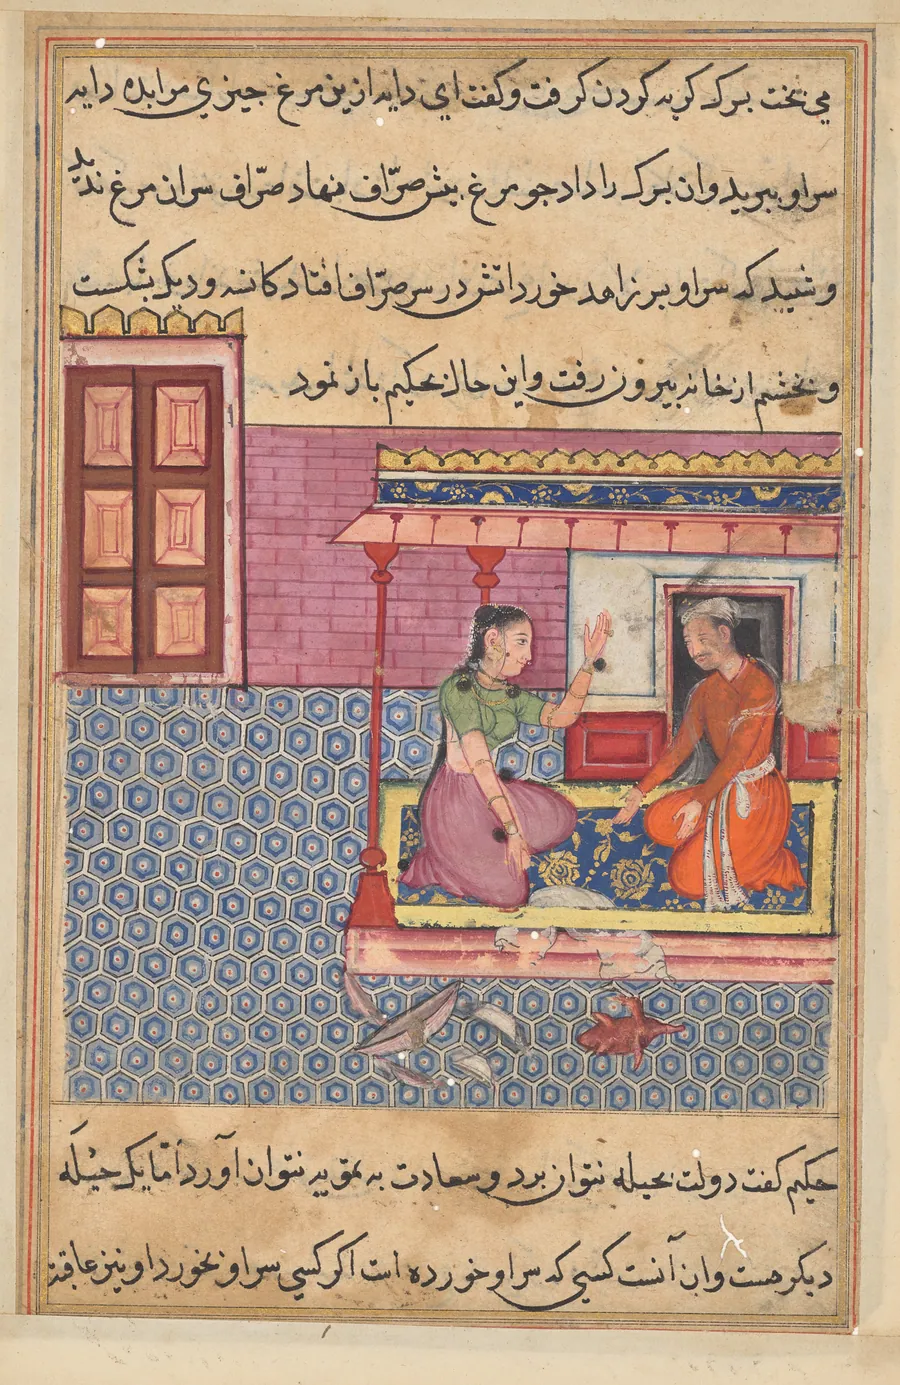 می پخت پسرک گریه کردن گرفت و گفت ای دایه ازین مرغ چیزی مرا بده دایه
سر او ببرید و ان پسرک را داد چو مرغ پیش صرّاف نهاد صرّاف سر ان مرغ ندید
و شنید که سر او پسر زاهد خورد اتش در سر صرّاف افتاد کاسه و دیک بشکست
و بخشم از خانه بیرون رفت و این حال بحکیم باز نمود
حکیم گفت دولت بحیله نتوان برد و سعادت به نتوان آورد امّا یک حیله
دیگر هست و ان آنست کسی که سر او خورده است اگر کسی سر او بخورد او نیز عاقبت